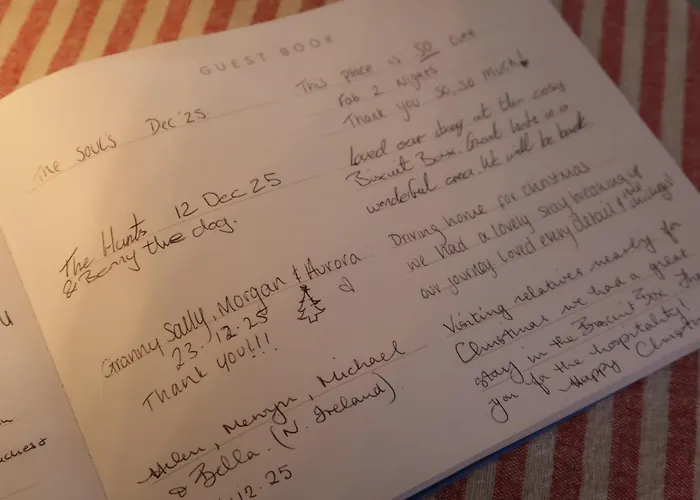 GUEST BOOK
The Souls Dec '25
This place is SO cute
Fab 2 Nights
Thank you so, so much!
The Hunts 12 Dec 25
& Benny the dog.
Loved our stay at the cosy
Biscuit Box. Great location in a
wonderful area. We will be back
Granny Sally, Morgan & Aurora
23.12.25
Thank you!!!
Driving home for Christmas
we had a lovely stay breaking up
our journey Loved every detail & the
Helen, Mervyn, Michael
& Bella. (N. Ireland).
.12.25
Visiting relatives nearby for
Christmas we had a great
stay in the Biscuit Box
you for the hospitality!
Happy Christ